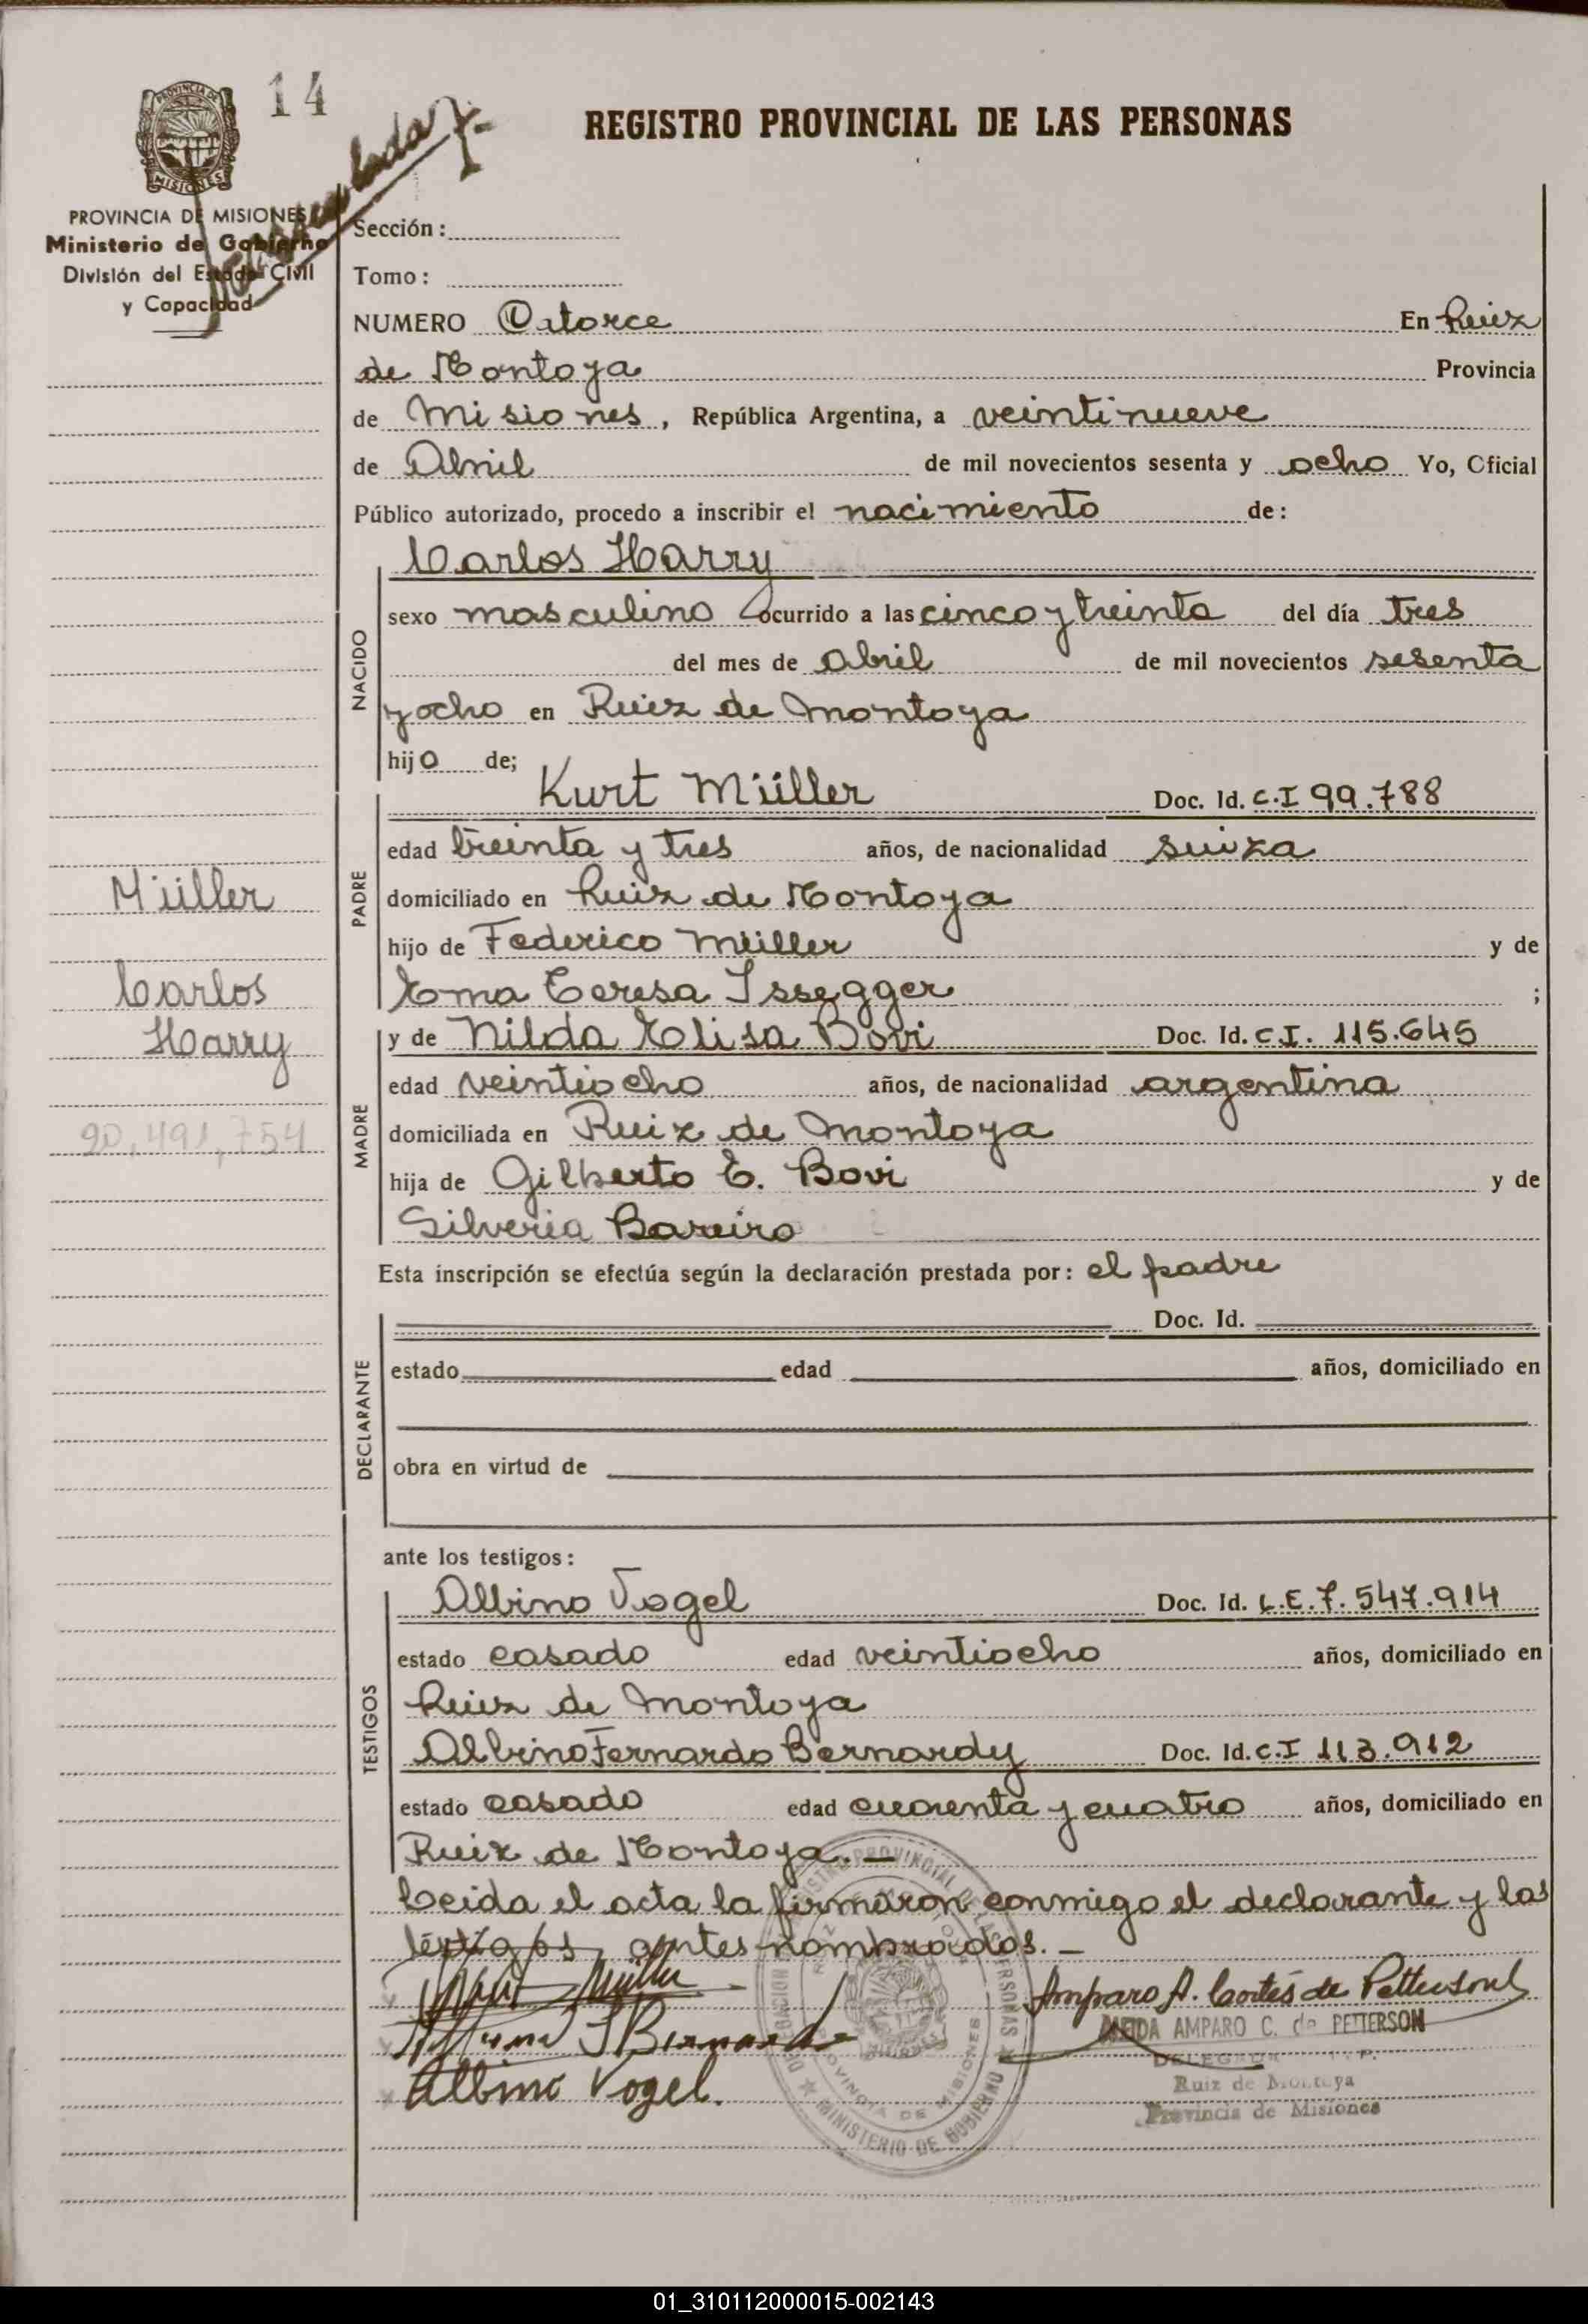 14
REGISTRO PROVINCIAL DE LAS PERSONAS
PROVINCIA DE
MISIONES
PROVINCIA DE MISIONES
Ministerio de Gobierno
División del Estado Civil
y Capacidad
Sección:
Tomo:
NUMERO Catorce En Ruiz
de Montoya Provincia
de Misiones, República Argentina, a veintinueve
de Abril de mil novecientos sesenta y ocho Yo, Oficial
Público autorizado, procedo a inscribir el nacimiento de:
Carlos Harry
NACIDO
sexo masculino ocurrido a las cinco y treinta del día tres
del mes de abril de mil novecientos sesenta
y ocho en Ruiz de Montoya
hijo de;
PADRE
Kurt Müller Doc. Id. C.I 99.788
edad treinta y tres años, de nacionalidad suiza
domiciliado en Ruiz de Montoya
hijo de Federico Müller y de
Ema Teresa Issegger ;
MADRE
y de Nilda Elisa Bovi Doc. Id. C.I. 115.645
edad veintiocho años, de nacionalidad argentina
domiciliada en Ruiz de Montoya
hija de Gilberto E. Bovi y de
Silveria Bareiro
Müller
Carlos
Harry
20.491.754
Esta inscripción se efectúa según la declaración prestada por: el padre
DECLARANTE
Doc. Id.
estado edad años, domiciliado en
obra en virtud de
ante los testigos:
TESTIGOS
Albino Vogel Doc. Id. L.E. 7.547.914
estado casado edad veintiocho años, domiciliado en
Ruiz de Montoya
Albino Fernardo Bernardy Doc. Id. C.I 113.912
estado casado edad cuarenta y cuatro años, domiciliado en
Ruiz de Montoya.—
Leida el acta la firmaron conmigo el declarante y los
testigos, antes nombrados.—
Kurt Müller
Amparo A. Cortés de Petterson
AMPARO C. de PETTERSON
Albino Vogel.
Ruiz de Montoya
Provincia de Misiones
MINISTERIO DE GOBIERNO
PROVINCIA DE MISIONES
01_310112000015-002143